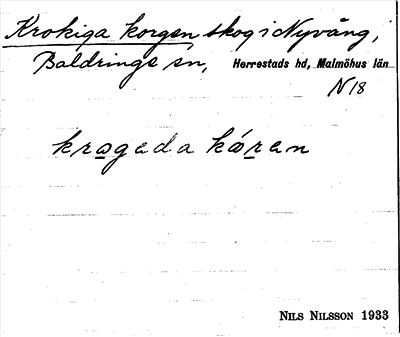 Krokiga korgen skog i Nyvång,
Baldringe sn, Herrestads hd, Malmöhus län
N 18
krogada kåren
NILS NILSSON 1933